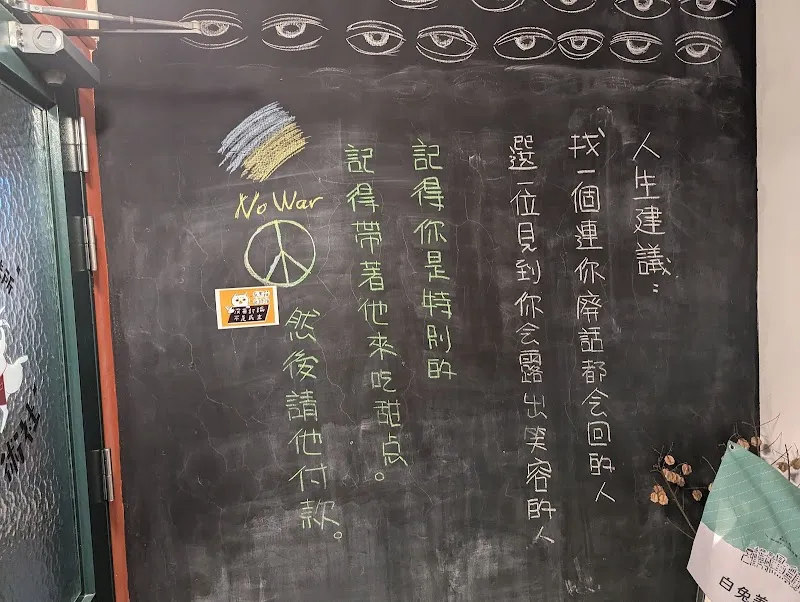 人生建議：
找一個連你廢話都会回的人
選一位見到你会露出笑容的人
記得你是特別的
記得帶著他來吃甜点。
然後請他付款。
No War
白兔